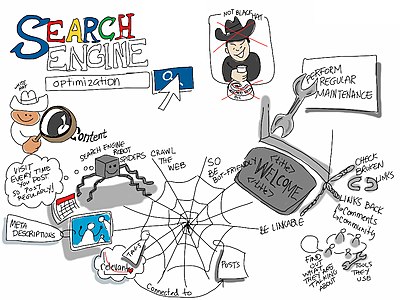 SEARCH
ENGINE
optimization
NOT BLACK HAT
PERFORM
REGULAR
MAINTENANCE
Content
VISIT
EVERY TIME
YOU POST
SO POST
REGULARLY!
SEARCH ENGINE
ROBOT
SPIDERS
CRAWL
THE
WEB
SO
BE
BOT-FRIENDLY
<title>
WELCOME
<title>
CHECK
BROKEN
LINKS
LINKS BACK
to Comments
to Community
BE LINKABLE
META
DESCRIPTIONS
TAGS
relevant
Connected to
POSTS
FIND
OUT
WHAT ARE
THEY ARE
TALKING
ABOUT
TOOLS
THEY
USE